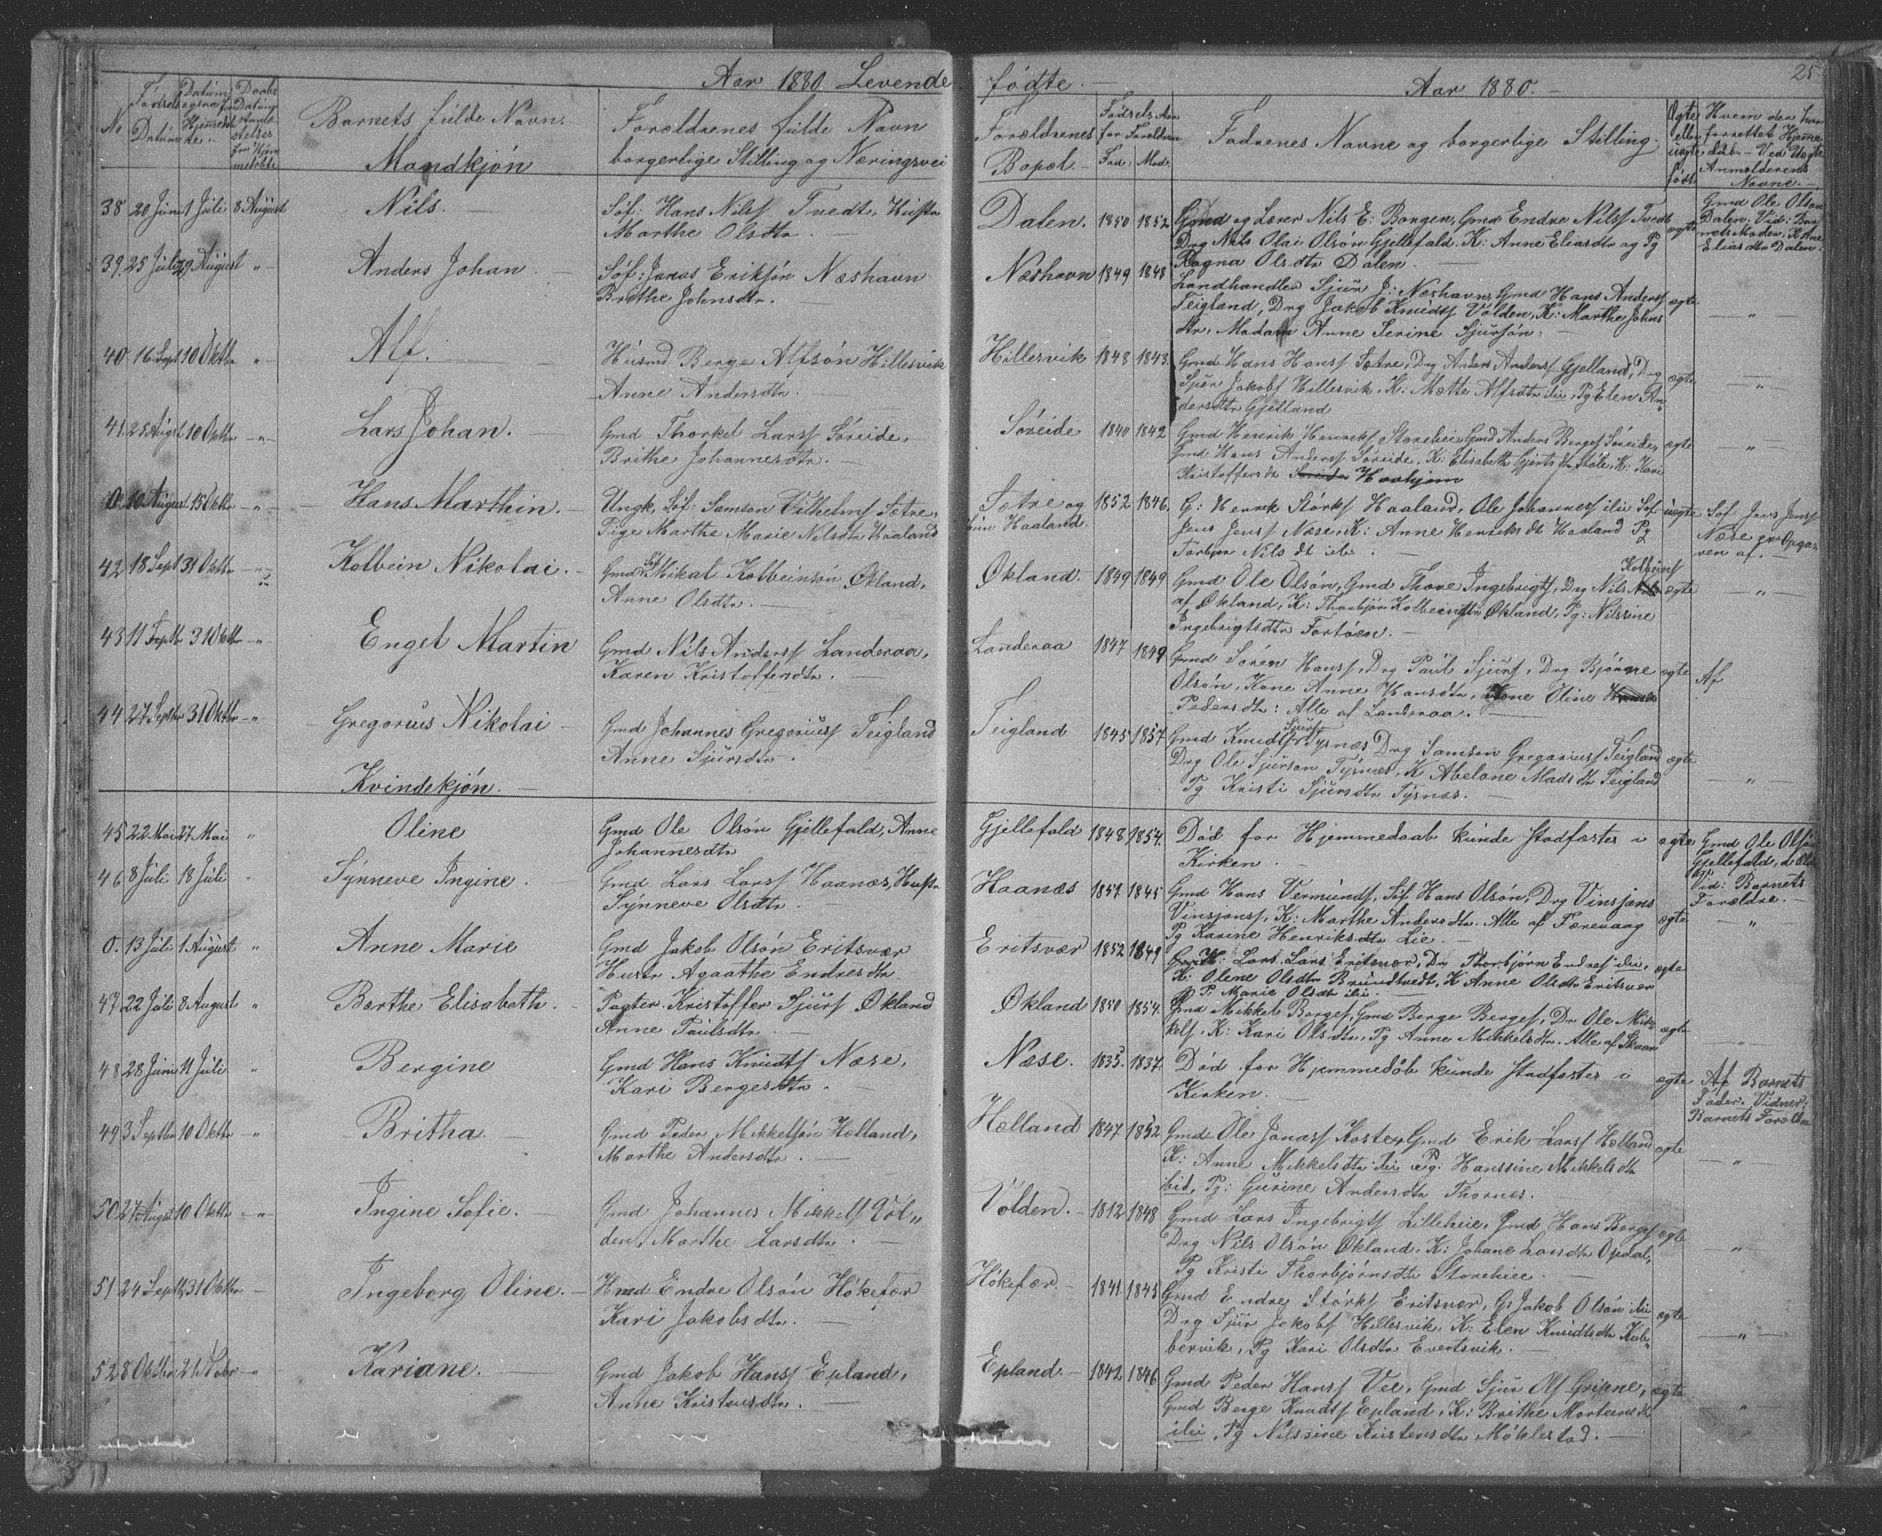 Aar 1880. Levende fødte. Aar 1880. 25
No Fødsels Datum Datum ogsaa for Hjemme Daabs Datum Stadfæstelses for Hjemmedøbte
Barnets fulde Navn.
Mandkjøn
Forældrenes fulde Navn
borgerlige Stilling og Næringsvei
Forældrenes Bopæl
Fødsels Aar for Forældrene
Fad. Mod.
Fadrenes Navne og borgerlige Stilling.
Ægte eller uægte født
Hvem der har forrettet Hjemmedaab - Ved Uægte Anmelderens Navne.
38 20 Juni 1 Juli 8 August Nils.
Søf: Hans Nilss Tvedt, Hustr
Marthe Olsdtr.
Dalen. 1850 1852
Gmd og Lærer Nils E: Borgen, Gmd Endre Nilss Tvedt
Drg Nils Olai Olsøn Gjellefald. K: Anne Eliasdtr og Pg
Ragna Olsdtr Dalen.
ægte
Gmd Ole Olsøn
Dalen. Vid: Barnets Moder, K Anne
Eliasdtr Dalen.
39. 25 Juli 29 August " Anders Johan
Søf: Jonas Eriksøn Næshavn
Brithe Johnsdtr.
Næshavn 1849 1848
Landhandler Sjur J: Næshavn, Gmd Hans Anderss
Teigland, Drg Jakob Knudss Volden, K: Marthe Johns
dtr, Madam Anne Serine Sjursøn.
ægte "
40 16 Sept 10 Oktbr " Alf.
Husmd Berge Alfsøn Hillesvik
Anne Andersdtr.
Hillesvik 1848 1843.
Gmd Hans Hanss Sætre, Drg Anders Anderss Gjelland, Drg
Sjur Jakobs Hillesvik, K: Mætte Alfsdtr ibi, Pg Elen An
dersdtr Gjelland
ægte "
41. 25 August 10 Oktbr " Lars Johan.
Gmd Thorkel Larss Søreide,
Brithe Johannesdtr.
Søreide 1840 1842
Gmd Henrik Henrikss Storeheie, Gmd Anders Berges Søreide,
Gmd Hans Anderss Søreide, K: Elisabeth Gjertsdtr Støle, K: Kari
Kristoffersdtr Havhjem
ægte "
0. 10 August 15 Oktbr " Hans Marthin.
Ungk. Søf: Samson Vilhelms Sætre,
Pige Marthe Marie Nilsdtr Haaland
Sætre og hun Haaland. 1852 1846.
G: Henrik Størks Haaland, Ole Johanness ibi Søf:
Jens Jenss Næse, K: Anne Henriksdt Haaland Pg
Torbjør Nilsdt ibi.
uægte
Søf. Jens Jenss
Næse
42 18 Sept 31 Oktbr " Kolbein Nikolai.
Gmds Søf Mikal Kolbeinsøn Økland,
Anne Olsdtr.
Økland. 1849 1849
Gmd Ole Olsøn, Gmd Thore Ingebrigts, Drg Nils Kolbeins
af Økland, K: Thorbjør Kolbeinsdtr Økland, Pg: Nilssine
Ingebrigtsdtr Fortøen.
ægte "
43 11 Septbr 31 Oktbr " Engel Martin
Gmd Nils Anderss Landeraa,
Karen Kristoffersdtr.
Landeraa 1847 1849
Gmd Søren Hanss, Drg Paul Sjurs, Drg Bjørne
Olsøn, Kone Anne Hansdtr, Kone Oline
Pedersdtr: Alle af Landeraa.
ægte Af
44 27 Septbr 31 Oktbr " Gregorius Nikolai
Gmd Johannes Gregoriuss Teigland
Anne Sjursdtr.
Teigland 1845 1857.
Gmd Knud Sjurs Tysnæs Drg Samson Gregoriuss Teigland
Drg Ole Sjurson Tysnæs, K Abelone Madsdtr Teigland
Pg Kristi Sjursdtr Tysnæs.
ægte "
Kvindekjøn.
45 22 Mai 27. Mai " Oline
Gmd Ole Olsøn Gjellefald, Anne
Johannesdtr
Gjellefald 1848 1854.
Død før Hjemmedaab kunde stadfæstes i
Kirken.
ægte
Gmd Ole Olsøn
Gjellefald,
Vid: Barnets
Forældre.
46 8 Juli 18 Juli " Synneve Ingine.
Gmd Lars Larss Haanæs, Hustr
Synneve Olsdtr.
Haanæs 1852 1845
Gmd Hans Vermunds, Søf Hans Olsøn, Drg Vinsjans
Vinsjanss, K: Marthe Andersdtr. Alle af Færevaag
Pg Karine Henriksdtr Lie.
ægte "
0. 13 Juli 1. August " Anne Marie
Gmd Jakob Olsøn Eritsvær
Hustr Agaathe Endresdtr.
Eritsvær 1852 1849
Gmd: Lars Lars Eritsvær, Drg Thorbjørn Endress ibi,
K: Olene Olsdtr Brundtvedt, K Anne Olsdtr Eritsvær
P. Marie Olsdtr ibi.
ægte
47 22 Juli 8 August " Barthe Elisabeth.
Pagter Kristoffer Sjurs Økland
Anne Paulsdtr.
Økland 1850 1854.
Gmd Mikkel Berges, Gmd Berge Berges, Dr Ole Mik
kels, K: Kari Olsdtr, Pg Anne Mikkelsdtr. Alle af Skaar
ægte "
48 28 Juni 11 Juli " Bergine
Gmd Hans Knudss Næse,
Kari Bergesdtr.
Næse. 1835. 1837.
Død før Hjemmedøb kunde stadfæstes i
Kirken.
ægte
Af Barnets
Fader. Vidner,
Barnets Forældre
49 3 Septbr 10 Oktbr " Britha.
Gmd Peder Mikkelsøn Hælland,
Marthe Andersdtr.
Hælland 1847 1852
Gmd Ole Jonass Koster, Gmd Erik Larss Hælland
K: Anne Mikkelsdtr ibi Pg: Hanssine Mikkelsdtr
ibid, Pg: Gurine Andersdtr Thornes.
ægte "
50 27 August 10 Oktbr " Ingine Sofie.
Gmd Johannes Mikkels Vol
den, Marthe Larsdtr.
Volden. 1812 1848
Gmd Lars Ingebrigts Lilleheie, Gmd Hans Berges
Drg Nils Olsøn Økland. K: Johane Larsdtr Opdal,
Pg Kristi Thorbjørnsdtr Storeheie.
ægte "
51 24 Septb 31 Oktbr Ingeborg Oline.
Hmd Endre Olsøn Høkefær
Kari Jakobsdtr.
Høkefær. 1841 1845
Gmd Endre Størks Eritsvær, G: Jakob Olsøn ibi
Drg Sjur Jakobs Hillesvik. K: Elen Knudsdtr Kul
bervik, Pg Kari Olsdtr Evertsvik.
ægte "
52 8 Oktbr 21 " Kariane.
Gmd Jakob Hanss Epland,
Anne Kristensdtr.
Epland. 1842 1846
Gmd Peder Hanss Vee, Gmd Sjur Ols Gripne,
Gmd Berge Knudss Epland, K: Brithe Mortensdtr
ibi, Pg Nilssine Kristensdtr Møklestad.
ægte "